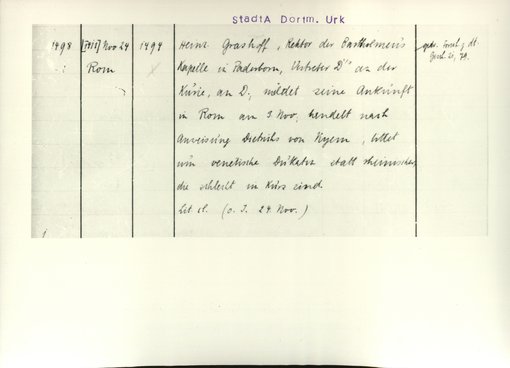 StadtA Dortm. Urk
1498 Nov 24 1494 Heinr. Grashoff, Rektor der Bartholomeus
Rom Kapelle in Paderborn, Vertreter D's an der
Kurie, an D., meldet seine Ankunft
in Rom am 3. Nov., handelt nach
Anweisung Dietrichs von Nyem, bittet
um venetische Dukaten statt rheinischer,
die schlecht im Kurs sind.
(o. J. 24. Nov.)